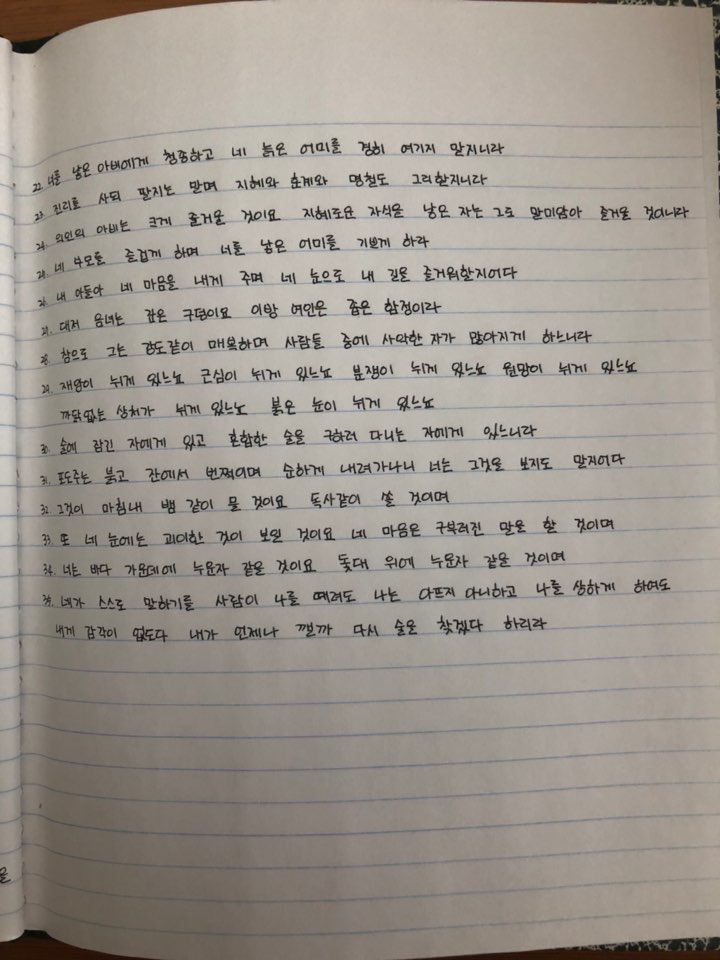 22. 너를 낳은 아비에게 청종하고 네 늙은 어미를 경히 여기지 말지니라
23. 진리를 사되 팔지는 말며 지혜와 훈계와 명철도 그리할지니라
24. 의인의 아비는 크게 즐거울 것이요 지혜로운 자식을 낳은 자는 그로 말미암아 즐거울 것이니라
25. 네 부모를 즐겁게 하며 너를 낳은 어미를 기쁘게 하라
26. 내 아들아 네 마음을 내게 주며 네 눈으로 내 길을 즐거워할지어다
27. 대저 음녀는 깊은 구덩이요 이방 여인은 좁은 함정이라
28. 참으로 그는 강도같이 매복하며 사람들 중에 사악한 자가 많아지게 하느니라
29. 재앙이 뉘게 있느뇨 근심이 뉘게 있느뇨 분쟁이 뉘게 있느뇨 원망이 뉘게 있느뇨
까닭없는 상처가 뉘게 있느뇨 붉은 눈이 뉘게 있느뇨
30. 술에 잠긴 자에게 있고 혼합한 술을 구하러 다니는 자에게 있느니라
31. 포도주는 붉고 잔에서 번쩍이며 순하게 내려가나니 너는 그것을 보지도 말지어다
32. 그것이 마침내 뱀 같이 물 것이요 독사같이 쏠 것이며
33. 또 네 눈에는 괴이한 것이 보일 것이요 네 마음은 구부러진 말을 할 것이며
34. 너는 바다 가운데에 누운자 같을 것이요 돛대 위에 누운자 같을 것이며
35. 네가 스스로 말하기를 사람이 나를 때려도 나는 아프지 아니하고 나를 상하게 하여도
내게 감각이 없도다 내가 언제나 깰까 다시 술을 찾겠다 하리라